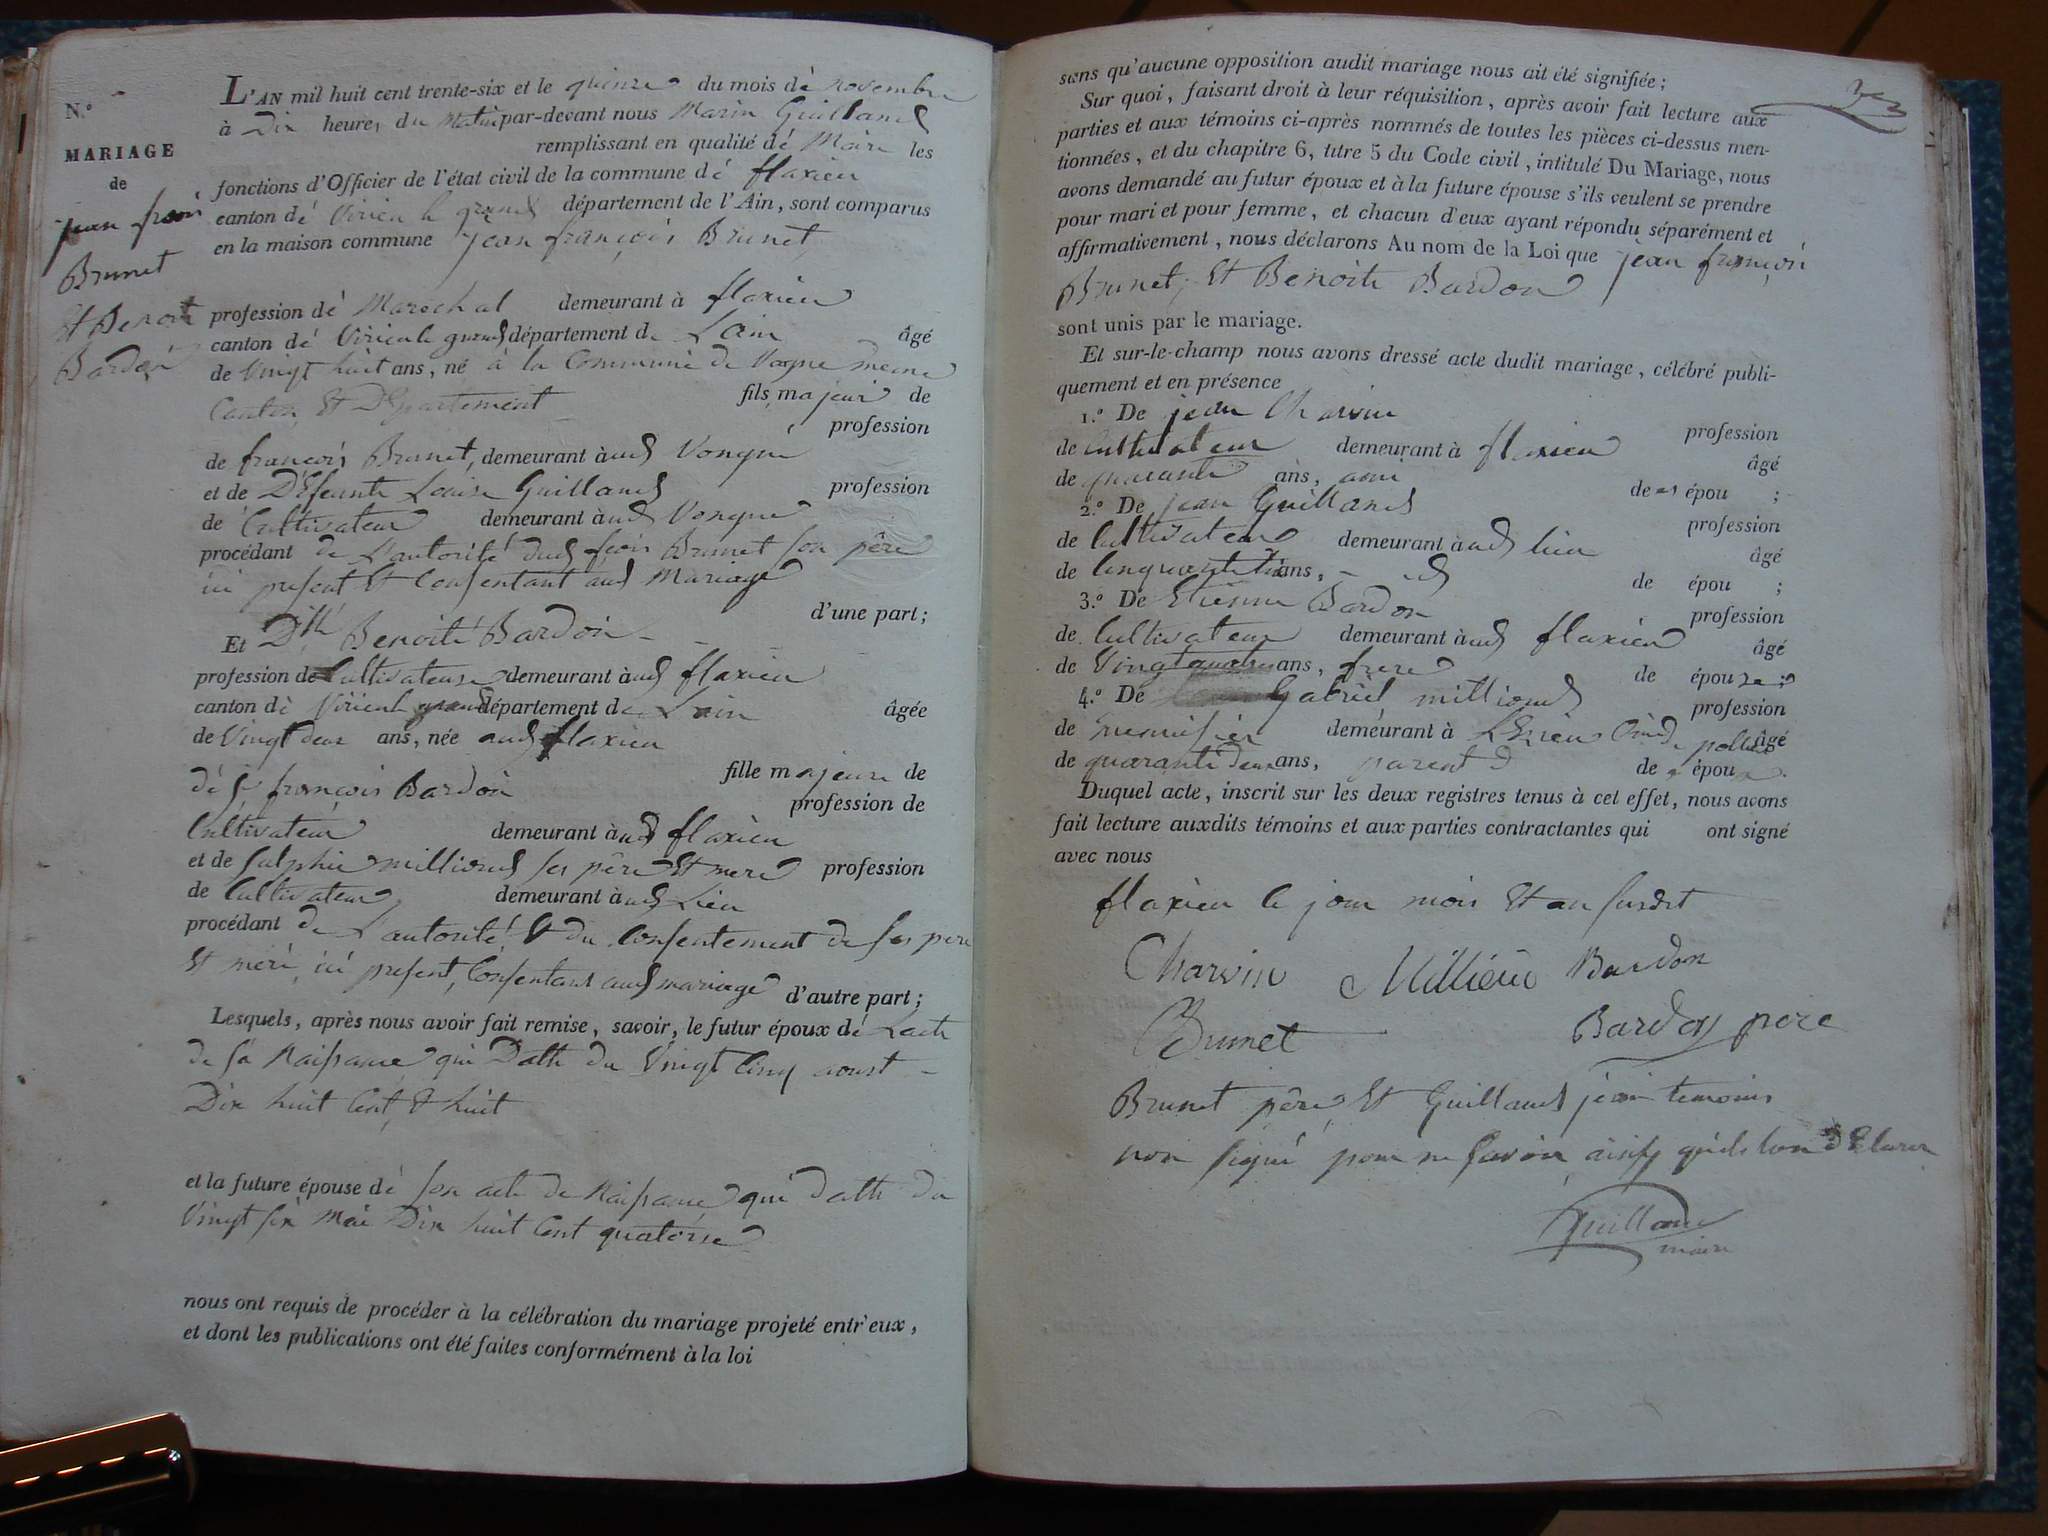 N.°
MARIAGE
de
jean frcois
Brunet
Et Benoite
Bardon
L'AN mil huit cent trente-six et le quinze du mois de novembre
à Dix heures du Matin par-devant nous Marin Guilland
remplissant en qualité de Maire les
fonctions d'Officier de l'état civil de la commune de flaxieu
canton de Virieu le grand département de l'Ain, sont comparus
en la maison commune jean françois Brunet,
profession de Marechal demeurant à flaxieu
canton de Virieu le grand département de Lain âgé
de Vingt huit ans, né à la Commune de meme
Canton Et Departement fils majeur de
profession
de françois Brunet, demeurant aud Vongne
et de Defeunte Louise Guilland profession
de Cultivateur demeurant aud Vongne
procédant de L'autorité dud fcois Brunet son père
ici present Et Consentant aud Mariage
d'une part;
Et Dlle Benoite Bardon
profession de Cultivateuse demeurant aud flaxieu
canton de Virieu le grand département de Lain âgée
de Vingt deux ans, née aud flaxieu
fille majeure de
de françois Bardon
profession de
Cultivateur demeurant aud flaxieu
et de milliond ses père Et mere profession
de Cultivateur demeurant aud Lieu
procédant de L'autorité & du Consentement de ses pere
Et mere ici present, Consentant aud mariage d'autre part;
Lesquels, après nous avoir fait remise, savoir, le futur époux de Lacte
de sa Naissance qui Datte du Vingt Cinq aoust
Dix huit Cent & huit
et la future épouse de son acte de Naissance qui datte du
Vingt six Mai Dix huit Cent quatorse
nous ont requis de procéder à la célébration du mariage projeté entr'eux,
et dont les publications ont été faites conformément à la loi
sans qu'aucune opposition audit mariage nous ait été signifiée;
Sur quoi, faisant droit à leur réquisition, après avoir fait lecture aux
parties et aux témoins ci-après nommés de toutes les pièces ci-dessus men-
tionnées, et du chapitre 6, titre 5 du Code civil, intitulé Du Mariage, nous
avons demandé au futur époux et à la future épouse s'ils veulent se prendre
pour mari et pour femme, et chacun d'eux ayant répondu séparément et
affirmativement, nous déclarons Au nom de la Loi que jean françois
Brunet, Et Benoite Bardon
sont unis par le mariage.
Et sur-le-champ nous avons dressé acte dudit mariage, célébré publi-
quement et en présence
1.° De jean Charvin
profession
de Cultivateur demeurant à flaxieu
âgé
de quarante ans, ami des épou ;
2.° De jean Guilland
profession
de Cultivateur demeurant aud lieu
âgé
de Cinquante ans, id de épou ;
3.° De Etienne Bardon
profession
de Cultivateur demeurant aud flaxieu
âgé
de Vingt quatre ans, frere de épouse;
4.° De Gabriel milliond
profession
de demeurant à
âgé
de quarante deux ans, parent de épou
Duquel acte, inscrit sur les deux registres tenus à cet effet, nous avons
fait lecture auxdits témoins et aux parties contractantes qui ont signé
avec nous
flaxieu le jour mois Et an susdit
Charvin Millieud Bardon
Brunet Bardon pere
Brunet père, Et Guilland jean temoins
non signé pour ne savoir ainsy quils lon déclarer
Guilland
maire